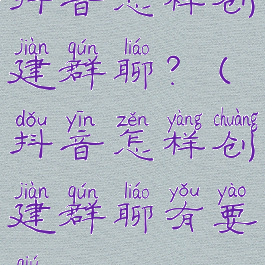 抖音怎样创
jiàn qún liáo
建群聊？（
dǒu yīn zěn yàng chuàng
抖音怎样创
jiàn qún liáo yǒu yào
建群聊有要
qiú